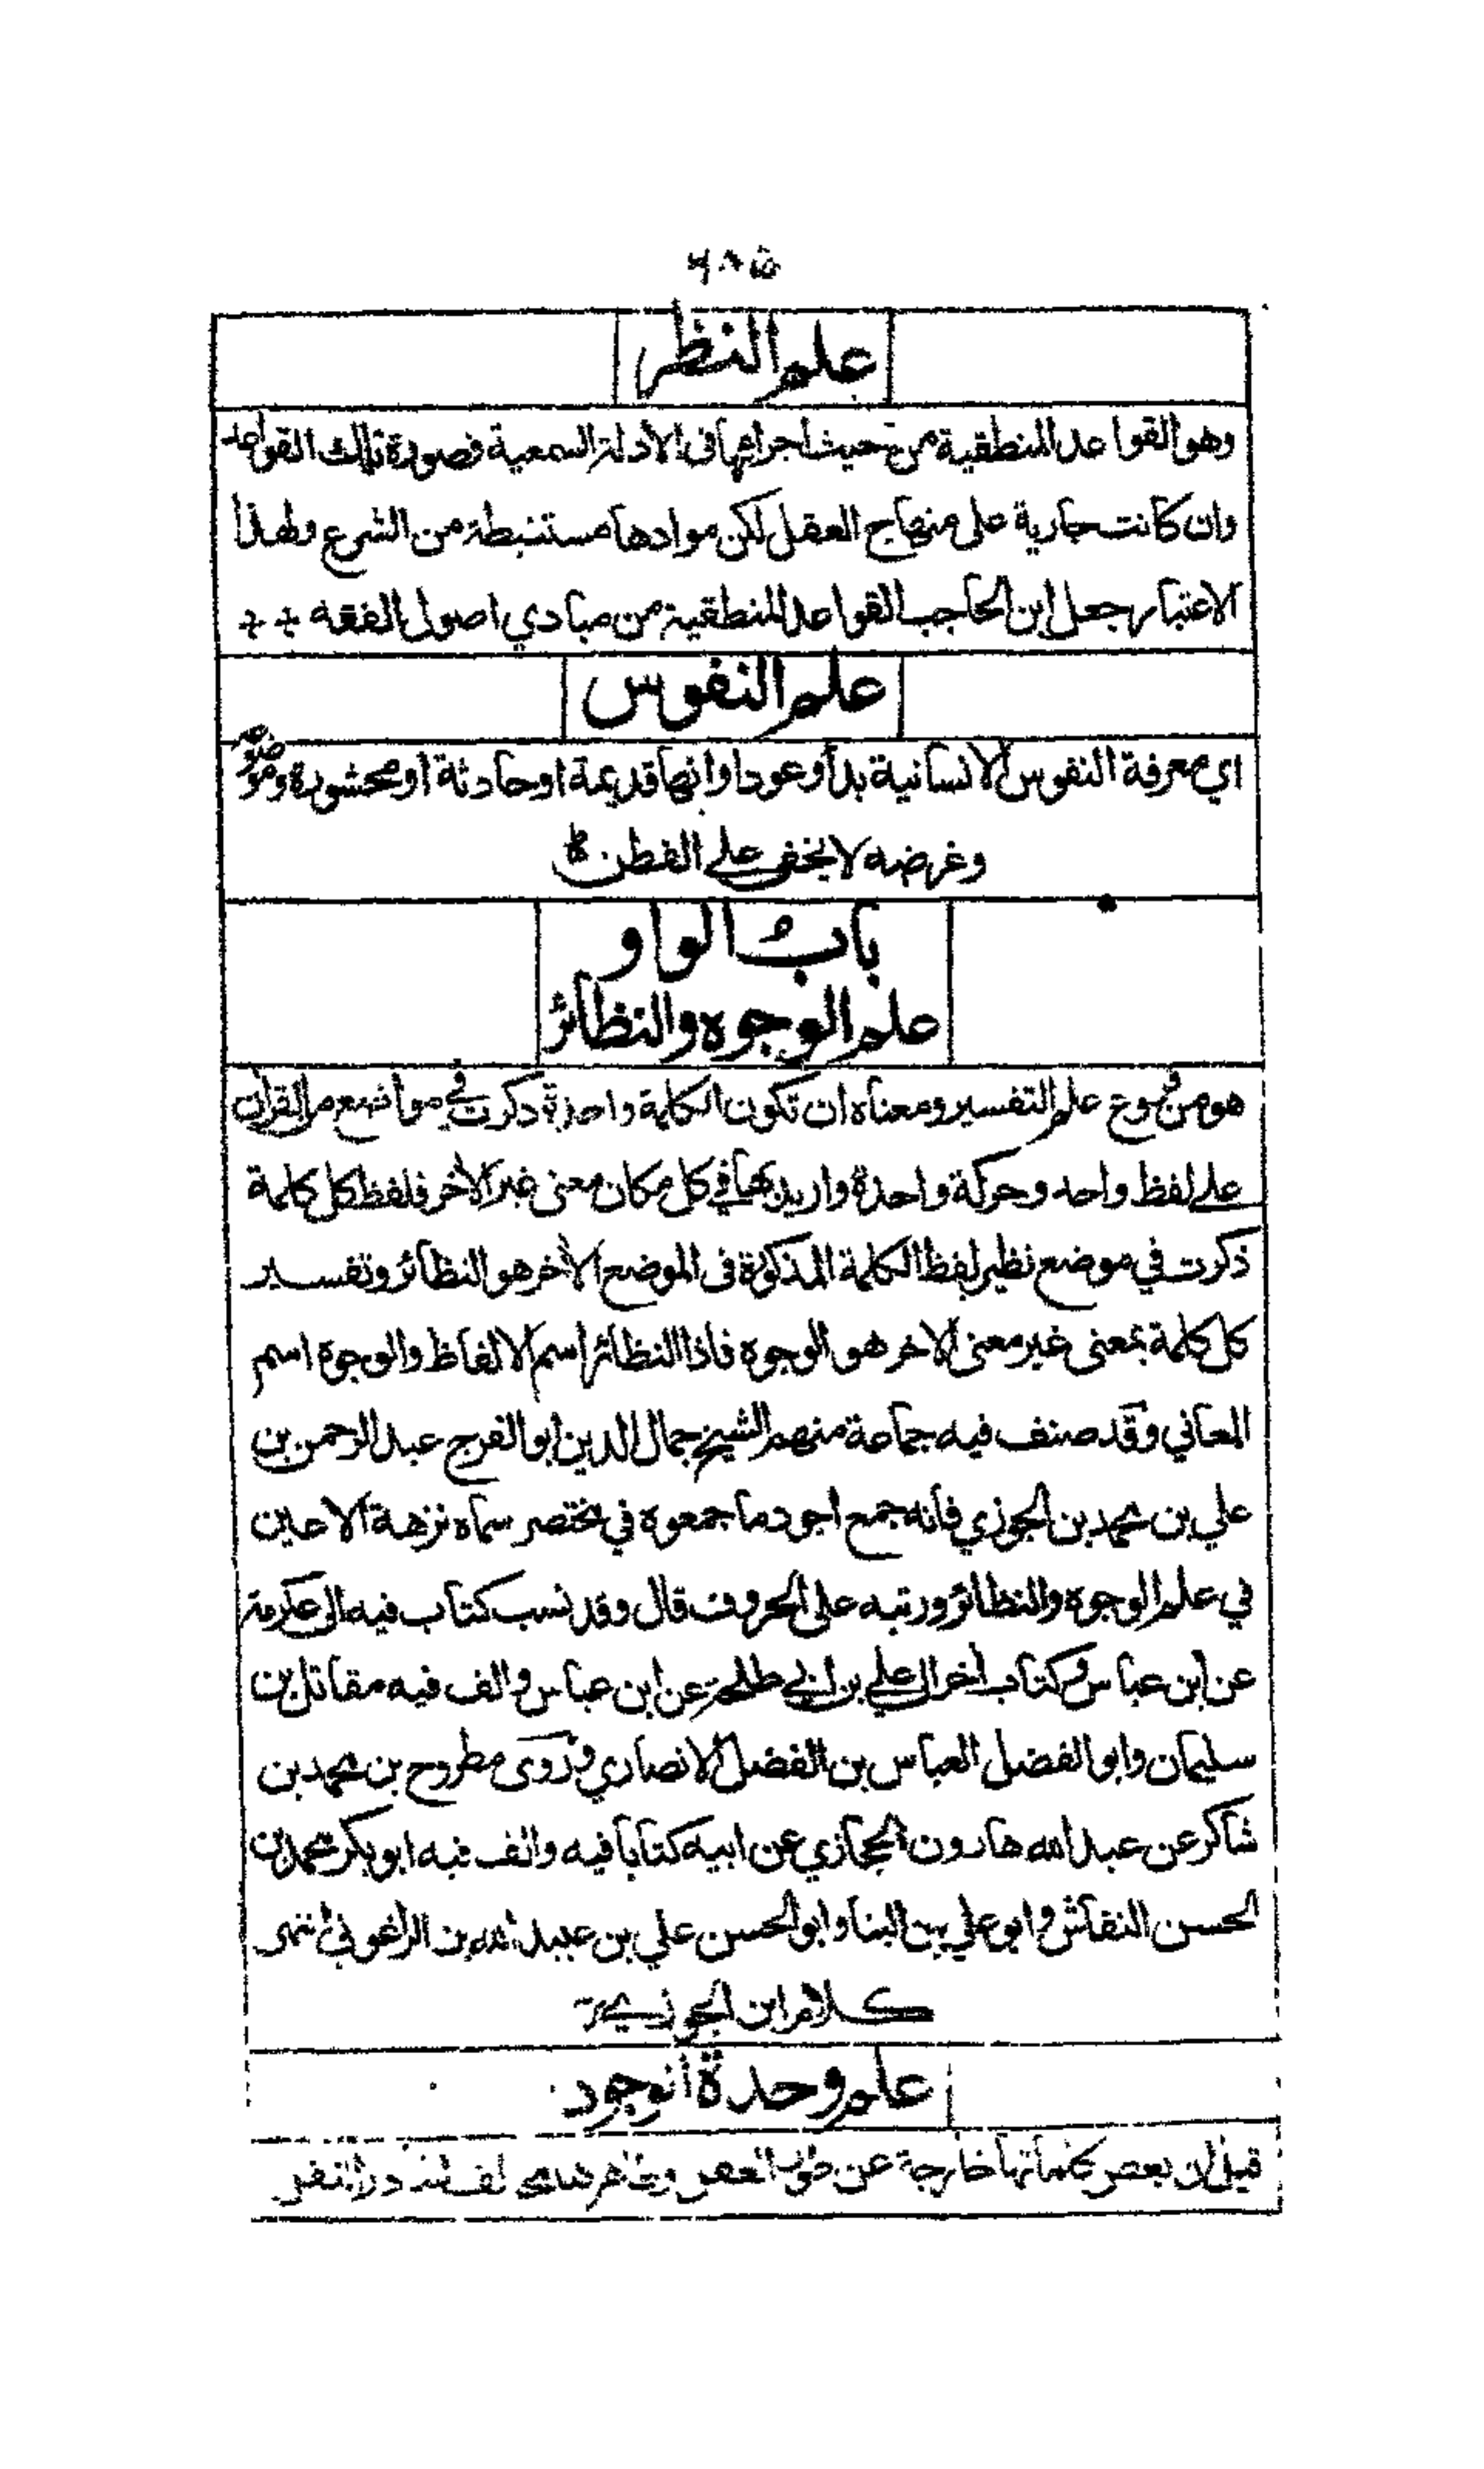 ٦٨٥
علم النظر
وهو القواعد المنطقية من حيث اجرائها فى الأدلة السمعية فصورة تلك القواعد
وان كانت جارية على منهاج العقل لكن موادها مستنبطة من الشرع ولهذا
الاعتبار جعل ابن الحاجب القواعد المنطقية من مبادي اصول الفقه
علم النفوس
اي معرفة النفوس الانسانية بدأ وعودا وانها قديمة او حادثة او محشورة وموضوعه
وغرضه لا يخفى على الفطن
باب الواو
علم الوجوه والنظائر
هو من فروع علم التفسير ومعناه ان تكون الكلمة واحدة ذكرت في مواضع من القرآن
على لفظ واحد وحركة واحدة واريد بها في كل مكان معنى غير الأخر فلفظ كل كلمة
ذكرت في موضع نظير لفظ الكلمة المذكورة فى الموضع الأخر هو النظائر وتفسير
كل كلمة بمعنى غير معنى الاخر هو الوجوه فاذا النظائر اسم الالفاظ والوجوه اسم
المعاني وقد صنف فيه جماعة منهم الشيخ جمال الدين ابو الفرج عبد الرحمن بن
علي بن محمد بن الجوزي فانه جمع اجود ما جمعوه في مختصر سماه نزهة الاعين
في علم الوجوه والنظائر ورتبه على الحروف قال وقد نسب كتاب فيه الى عكرمة
عن ابن عباس وكتاب أخر الى علي بن ابي طلحة عن ابن عباس والف فيه مقاتل بن
سليمان وابو الفضل العباس بن الفضل الانصاري وروى مطروح بن محمد بن
شاكر عن عبد الله هارون الحجازي عن ابيه كتابا فيه والف فيه ابو بكر محمد بن
الحسن النقاش وابو علي بن البنا وابو الحسن علي بن عبيد الله بن الزاغوني انتهى
كلام ابن الجوزي
علم وحدة الوجود
قيل ان بعض خارجة عن طور العقل